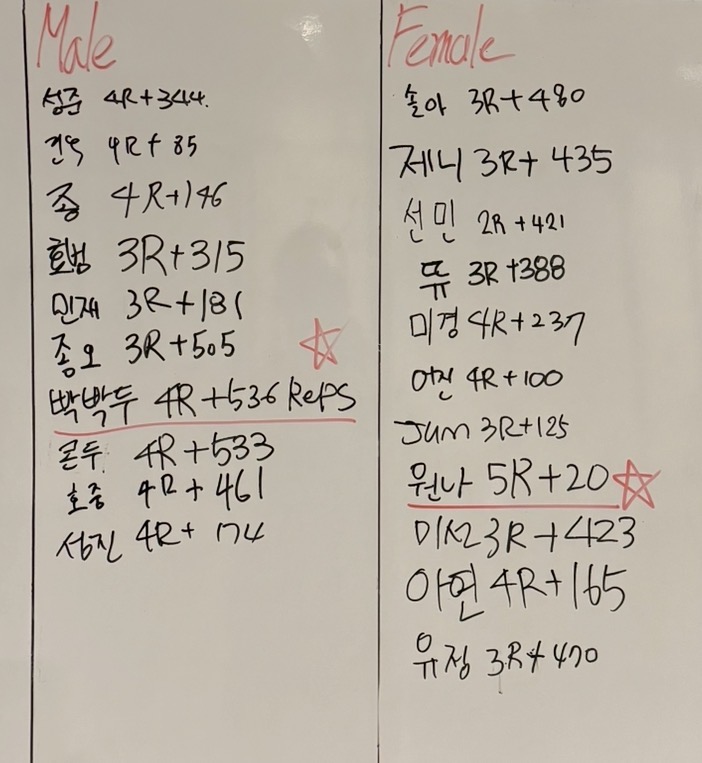 Male
성준 4R+344.
건욱 4R+85
종 4R+146
효범 3R+315
민재 3R+181
종오 3R+505
빡빡두 4R+536 Reps
콘두 4R+533
호중 4R+461
성진 4R+174
Female
솔아 3R+480
제니 3R+435
선민 2R+421
뜌 3R+388
미경 4R+237
어진 4R+100
Jum 3R+125
원나 5R+20
미선 3R+423
아연 4R+165
유정 3R+470